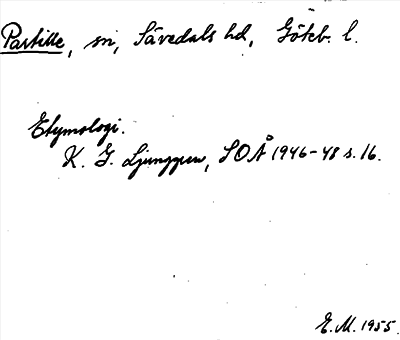 Partille, sn, Sävedals hd, Göteb. l.
Etymologi.
K. G. Ljunggren, SOÅ 1946-48 s. 16.
E. M. 1955.